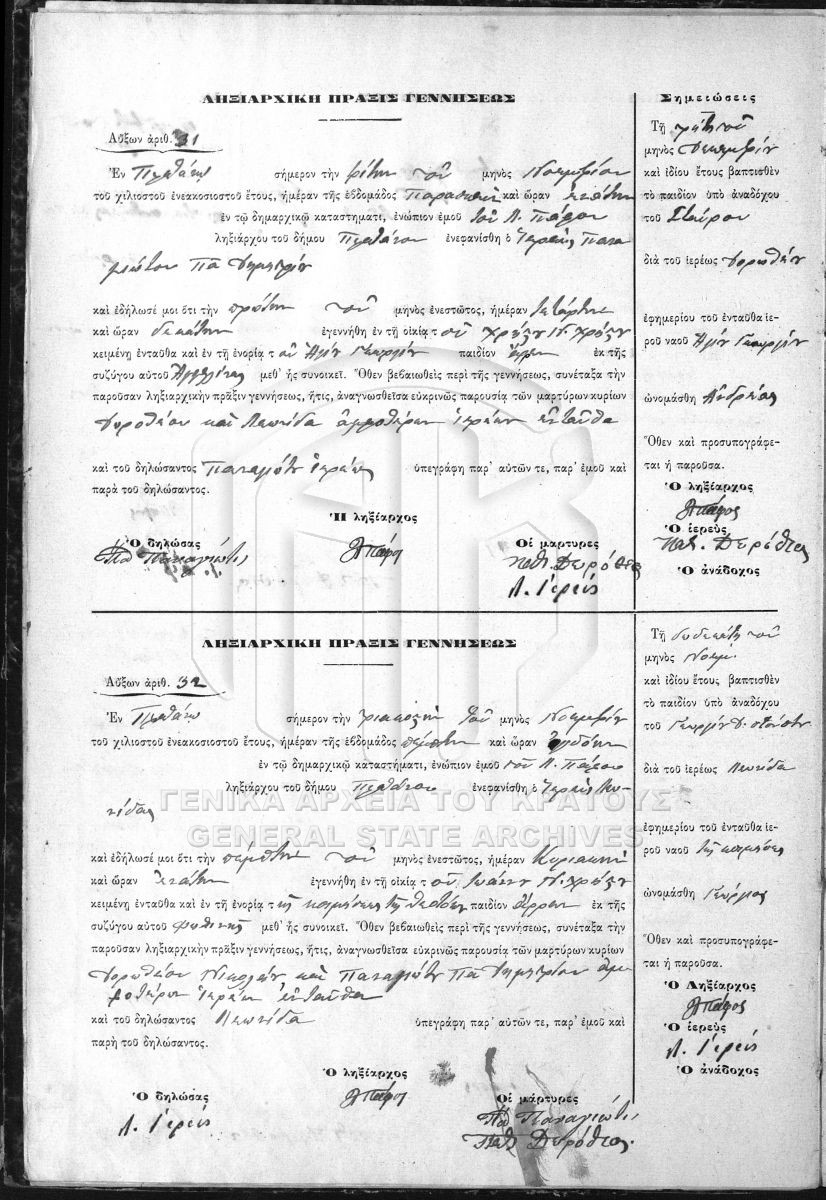 ΛΗΞΙΑΡΧΙΚΗ ΠΡΑΞΙΣ ΓΕΝΝΗΣΕΩΣ
Αὔξων ἀριθ. 31
Ἐν σήμερον τὴν τοῦ μηνὸς Νοεμβρίου
τοῦ χιλιοστοῦ ἐνεακοσιοστοῦ ἔτους, ἡμέραν τῆς ἑβδομάδος καὶ ὥραν
ἐν τῷ δημαρχικῷ καταστήματι, ἐνώπιον ἐμοῦ τοῦ Λ. Πάφου
ληξιάρχου τοῦ δήμου ἐνεφανίσθη ὁ Ἱερεὺς Πανα
γιώτου Πα Δημητρίου
καὶ ἐδήλωσέ μοι ὅτι τὴν πρώτην τοῦ μηνὸς ἐνεστῶτος, ἡμέραν Τετάρτην
καὶ ὥραν δεκάτην ἐγεννήθη ἐν τῇ οἰκίᾳ τοῦ
κειμένῃ ἐνταῦθα καὶ ἐν τῇ ἐνορίᾳ τοῦ Ἁγίου Γεωργίου παιδίον ἐκ τῆς
συζύγου αὐτοῦ Ἀγγελίνας μεθ' ἧς συνοικεῖ. Ὅθεν βεβαιωθεὶς περὶ τῆς γεννήσεως, συνέταξα τὴν
παροῦσαν ληξιαρχικὴν πρᾶξιν γεννήσεως, ἥτις, ἀναγνωσθεῖσα εὐκρινῶς παρουσίᾳ τῶν μαρτύρων κυρίων
Δωροθέου καὶ Λεωνίδα ἀμφοτέρων ἱερέων ἐνταῦθα
καὶ τοῦ δηλώσαντος Παναγιώτη ἱερέως ὑπεγράφη παρ' αὐτῶν τε, παρ' ἐμοῦ καὶ
παρὰ τοῦ δηλώσαντος.
Ὁ δηλώσας
Πα Παναγιώτις
Ἡ ληξίαρχος
ΛΠάφος
Οἱ μάρτυρες
Δωρόθεος
Λ. Ἱερεύς
Σημειώσεις
Τῇ τρίτῃ τοῦ
μηνὸς Δεκεμβρίου
καὶ ἰδίου ἔτους βαπτισθὲν
τὸ παιδίον ὑπὸ ἀναδόχου
τοῦ Σταύρου
διὰ τοῦ ἱερέως Δωροθέου
ἐφημερίου τοῦ ἐνταῦθα ἱε-
ροῦ ναοῦ Ἁγίου Γεωργίου
ὠνομάσθη Ἀνδρέας
Ὅθεν καὶ προσυπογράφε-
ται ἡ παροῦσα.
Ὁ ληξίαρχος
ΛΠάφος
Ὁ ἱερεὺς
Δωρόθεος
Ὁ ἀνάδοχος
ΛΗΞΙΑΡΧΙΚΗ ΠΡΑΞΙΣ ΓΕΝΝΗΣΕΩΣ
Αὔξων ἀριθ. 32
Ἐν σήμερον τὴν τοῦ μηνὸς Νοεμβρίου
τοῦ χιλιοστοῦ ἐνεακοσιοστοῦ ἔτους, ἡμέραν τῆς ἑβδομάδος πέμπτην καὶ ὥραν ὀγδόην
ἐν τῷ δημαρχικῷ καταστήματι, ἐνώπιον ἐμοῦ τοῦ Λ. Πάφου
ληξιάρχου τοῦ δήμου ἐνεφανίσθη ὁ Ἱερεὺς Λεω-
νίδας
ΓΕΝΙΚΑ ΑΡΧΕΙΑ ΤΟΥ ΚΡΑΤΟΥΣ
GENERAL STATE ARCHIVES
καὶ ἐδήλωσέ μοι ὅτι τὴν πέμπτην τοῦ μηνὸς ἐνεστῶτος, ἡμέραν Κυριακὴν
καὶ ὥραν ἐγεννήθη ἐν τῇ οἰκίᾳ τοῦ Ἰωάννου
κειμένῃ ἐνταῦθα καὶ ἐν τῇ ἐνορίᾳ τῆς κοιμήσεως τῆς Θεοτόκου παιδίον ἄρρεν ἐκ τῆς
συζύγου αὐτοῦ Φωτεινῆς μεθ' ἧς συνοικεῖ. Ὅθεν βεβαιωθεὶς περὶ τῆς γεννήσεως, συνέταξα τὴν
παροῦσαν ληξιαρχικὴν πρᾶξιν γεννήσεως, ἥτις, ἀναγνωσθεῖσα εὐκρινῶς παρουσίᾳ τῶν μαρτύρων κυρίων
Δωροθέου Νικολάου καὶ Παναγιώτη Πα Δημητρίου ἀμ
φοτέρων ἱερέων ἐνταῦθα
καὶ τοῦ δηλώσαντος Λεωνίδα ὑπεγράφη παρ' αὐτῶν τε, παρ' ἐμοῦ καὶ
παρὴ τοῦ δηλώσαντος.
Ὁ δηλώσας
Λ. Ἱερεύς
Ὁ ληξίαρχος
ΛΠάφος
Οἱ μάρτυρες
Πα Παναγιώτις
Δωρόθεος
Τῇ δωδεκάτῃ τοῦ
μηνὸς Νοεμ.
καὶ ἰδίου ἔτους βαπτισθὲν
τὸ παιδίον ὑπὸ ἀναδόχου
τοῦ Γεωργίου
διὰ τοῦ ἱερέως Λεωνίδα
ἐφημερίου τοῦ ἐνταῦθα ἱε-
ροῦ ναοῦ τῆς κοιμήσεως
ὠνομάσθη Γεώργιος
Ὅθεν καὶ προσυπογράφε-
ται ἡ παροῦσα.
Ὁ Ληξίαρχος
ΛΠάφος
Ὁ ἱερεὺς
Λ. Ἱερεύς
Ὁ ἀνάδοχος